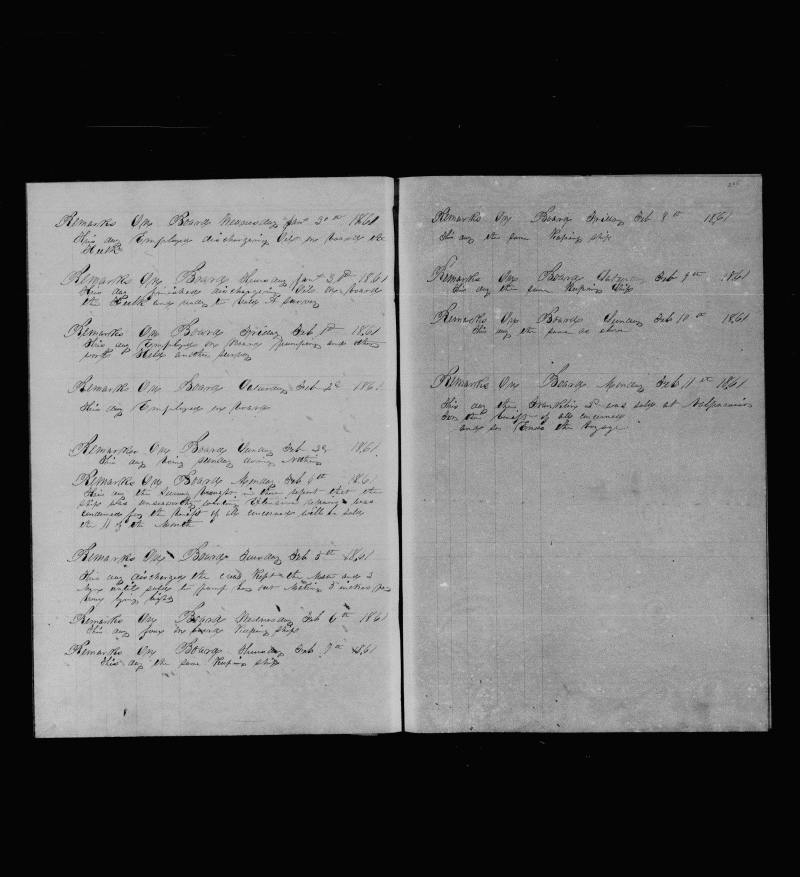 Remarks On Board Wednesday Jany 30th 1861
This day Employed discharging Oil on board the
Hulk
Remarks On Board Thursday Jany 31st 1861
This day finished discharging Oil on board
the Hulk and ready to hold A survey
Remarks On Board Friday Feb 1st 1861
This day Employed on board pumping and other
work Held another survey
Remarks On Board Saturday Feb 2d 1861
This day Employed on board
Remarks On Board Sunday Feb 3d 1861
This day being Sunday doing Nothing
Remarks On Board Monday Feb 4th 1861
This day the Survey brought in their report that the
ship was unseaworthy wanting Extensive repairs was
condemned for the benefit of all concerned will be sold
the 11 of the Month
Remarks On Board Tuesday Feb 5th 1861
This day discharged the crew, kept the Mate and 3
Men until sold to pump her out Making 5 inches per
hour lying light
Remarks On Board Wednesday Feb 6th 1861
This day four on board Keeping Ship
Remarks On Board Thursday Feb 7th 1861
This day the same Keeping ship
Remarks On Board Friday Feb 8th 1861
This day the same Keeping ship
Remarks On Board Saturday Feb 9th 1861
This day the same Keeping Ship
Remarks On Board Sunday Feb 10th 1861
This day the same as above
Remarks On Board Monday Feb 11th 1861
This day the Franklin 2d was sold at Valparaiso
for the benefit of all concerned
and so Ends the Voyage